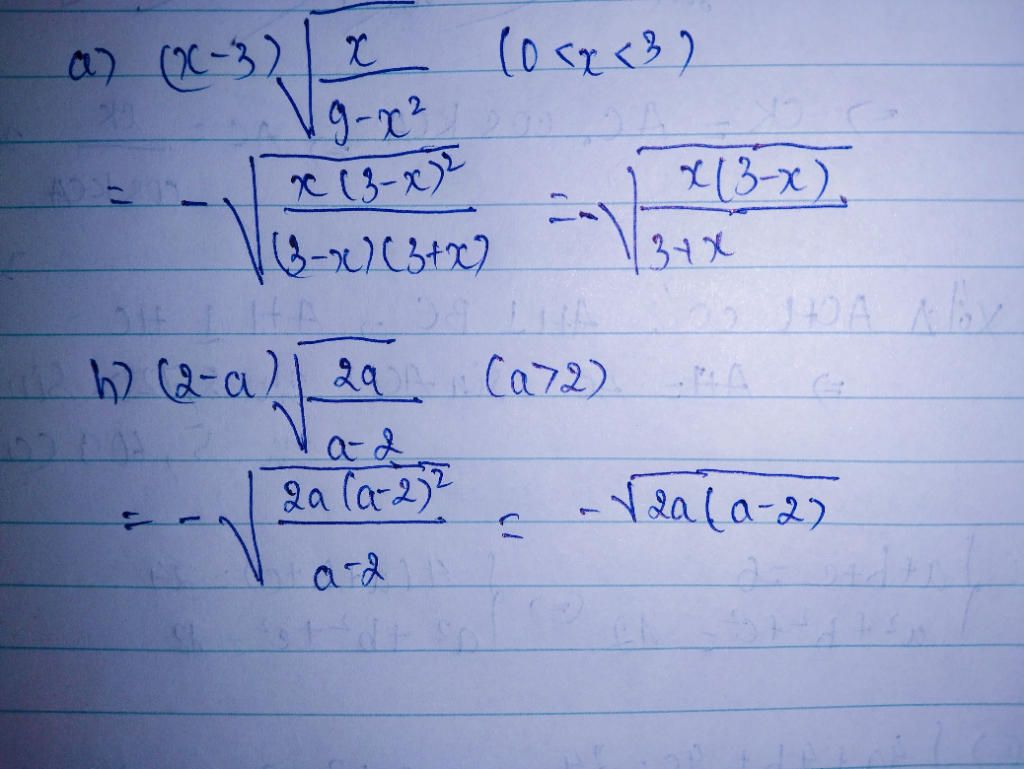 a) (x-3) √(x/(9-x²)) (0<x<3)
= -√(x(3-x)²/((3-x)(3+x))) = -√(x(3-x)/(3+x))
b) (2-a) √(2a/(a-2)) (a>2)
= -√(2a(a-2)²/(a-2)) = -√(2a(a-2))